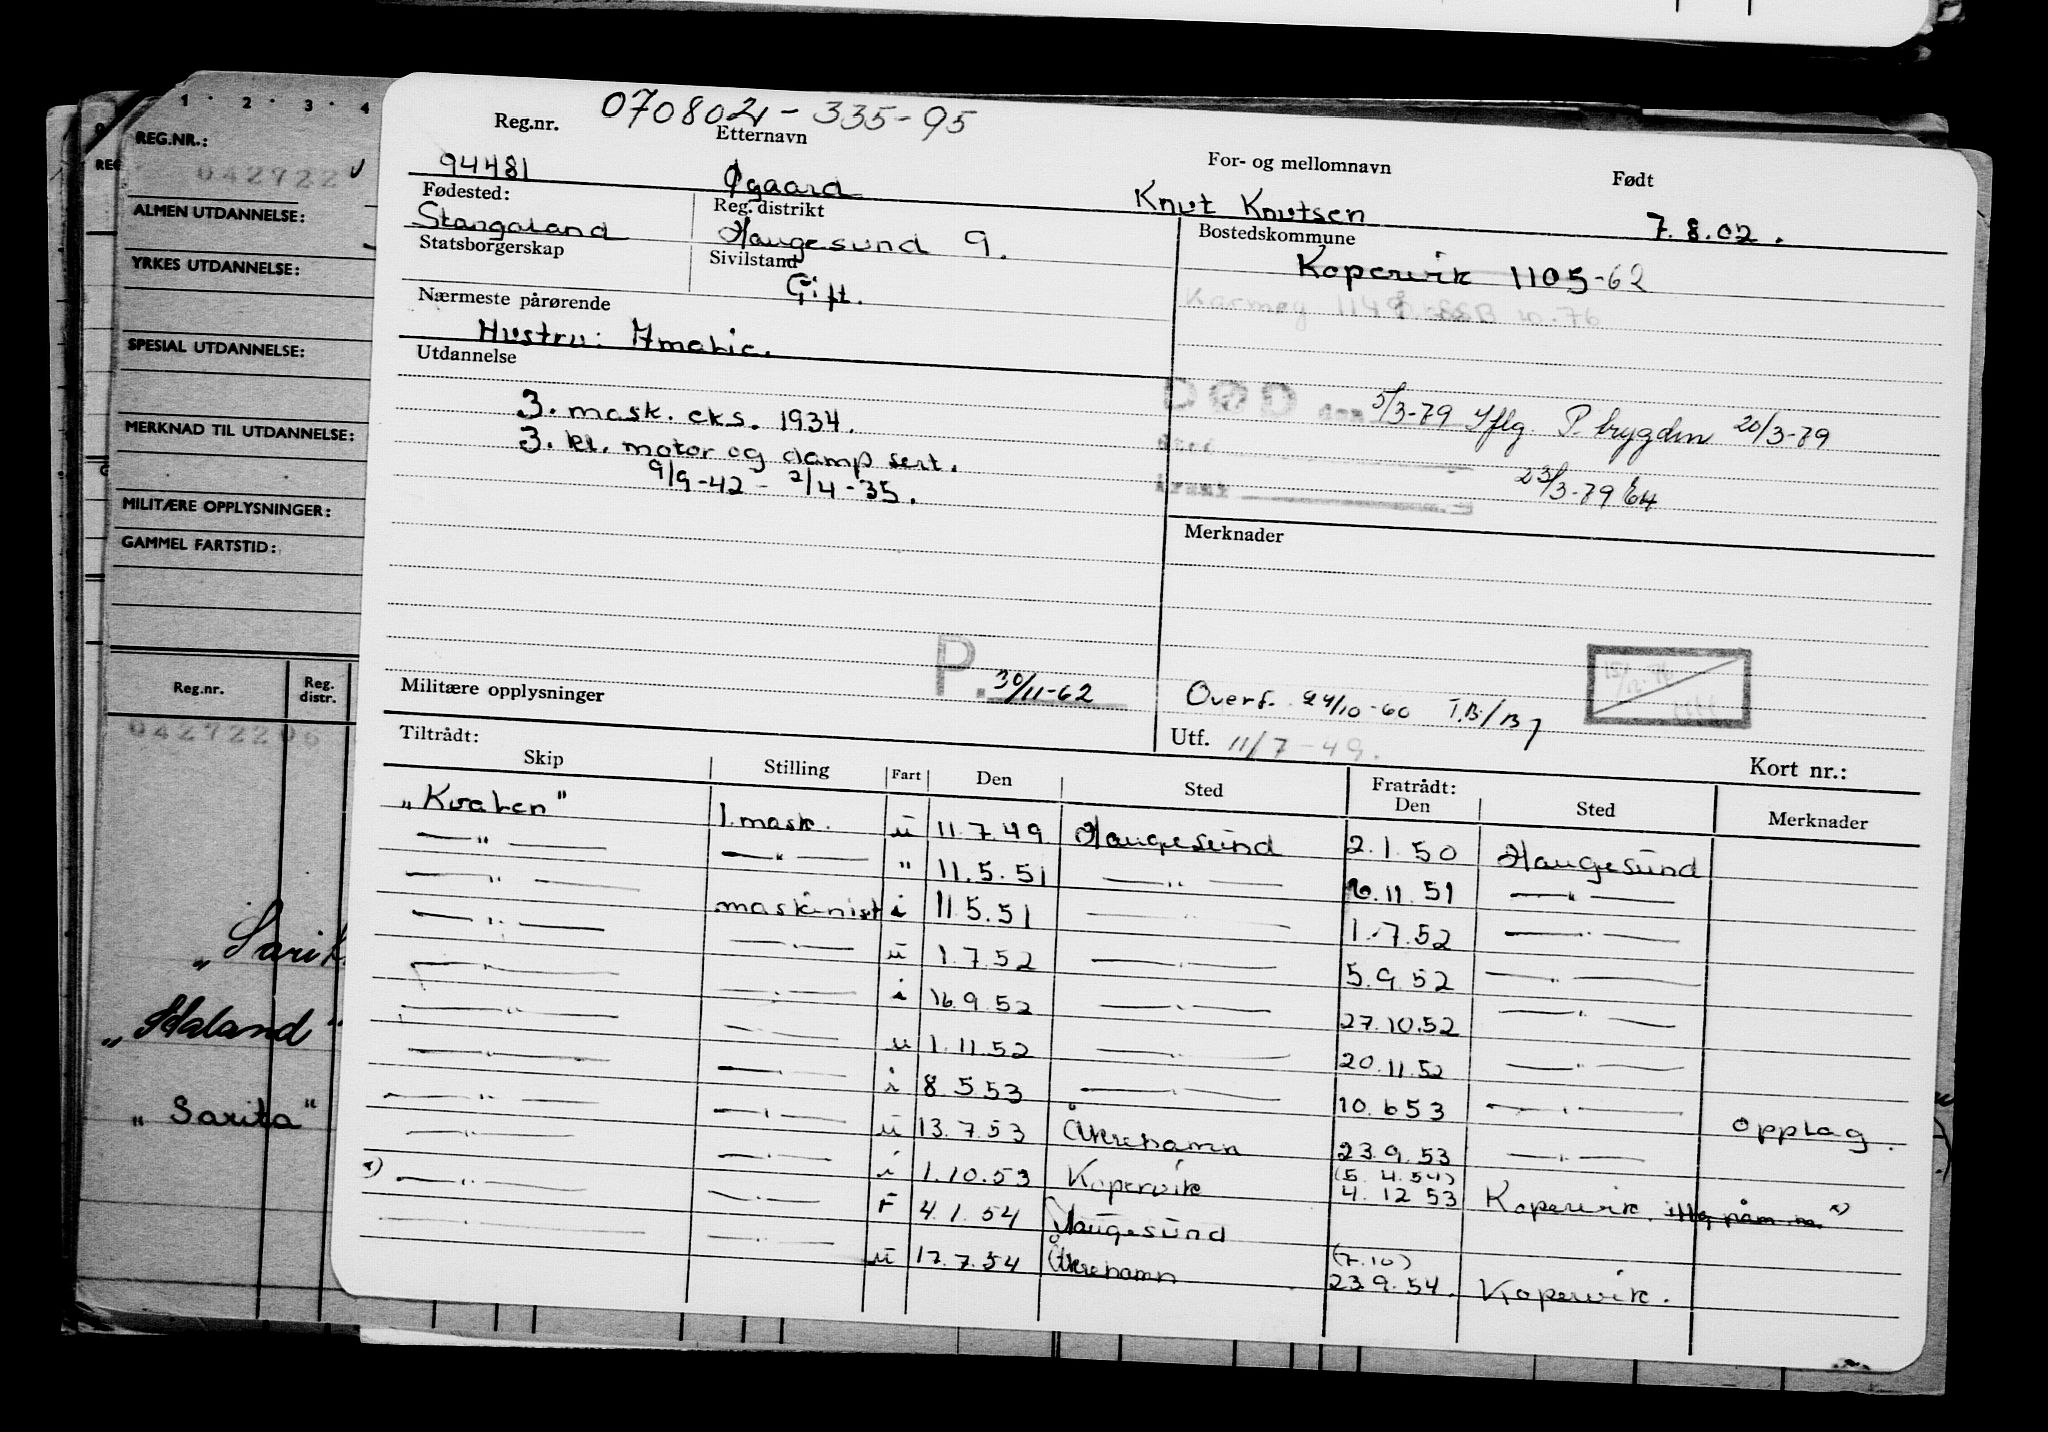 1 · 2 · 3 · 4
REG.NR.:
042722
ALMEN UTDANNELSE:
YRKES UTDANNELSE:
SPESIAL UTDANNELSE:
MERKNAD TIL UTDANNELSE:
MILITÆRE OPPLYSNINGER:
GAMMEL FARTSTID:
Reg.nr. Reg. distr.
042722
„Haland"
„Sarita"
Reg.nr. Etternavn For- og mellomnavn Født
94481 Øgaard Knut Knutsen 7.8.02.
Fødested: Reg. distrikt Bostedskommune
Stangaland Haugesund 9. Kopervik 1105-62
Statsborgerskap Sivilstand
Gift.
Nærmeste pårørende
Hustru: Amalie.
Utdannelse
3. mask. eks. 1934.
3. kl. motor og damp sert.
9/9-42 - 2/4-35.
DØD den 5/3-79 Iflg P. brygden 20/3-79
23/3-79
Merknader
P. 30/11-62
Militære opplysninger
Overf. 24/10-60
Utf. 11/7-49.
Tiltrådt: Kort nr.:
Skip Stilling Fart Den Sted Fratrådt: Den Sted Merknader
„Kvalen" 1. mask. u 11.7.49 Haugesund 2.1.50 Haugesund
— " — — " — " 11.5.51 — " — 6.11.51 — " —
— " — maskinist i 11.5.51 — " — 1.7.52 — " —
— " — — " — u 1.7.52 — " — 5.9.52 — " —
— " — — " — i 16.9.52 — " — 27.10.52 — " —
— " — — " — u 1.11.52 — " — 20.11.52 — " —
— " — — " — i 8.5.53 — " — 10.6.53 — " — opplag.
— " — — " — u 13.7.53 Åkrehamn 23.9.53 — " —
— " — — " — i 1.10.53 Kopervik (5.4.54) 4.12.53 Kopervik. x)
x) — " — — " — F 4.1.54 Haugesund
— " — — " — u 17.7.54 Åkrehamn (7.10) 23.9.54. Kopervik.